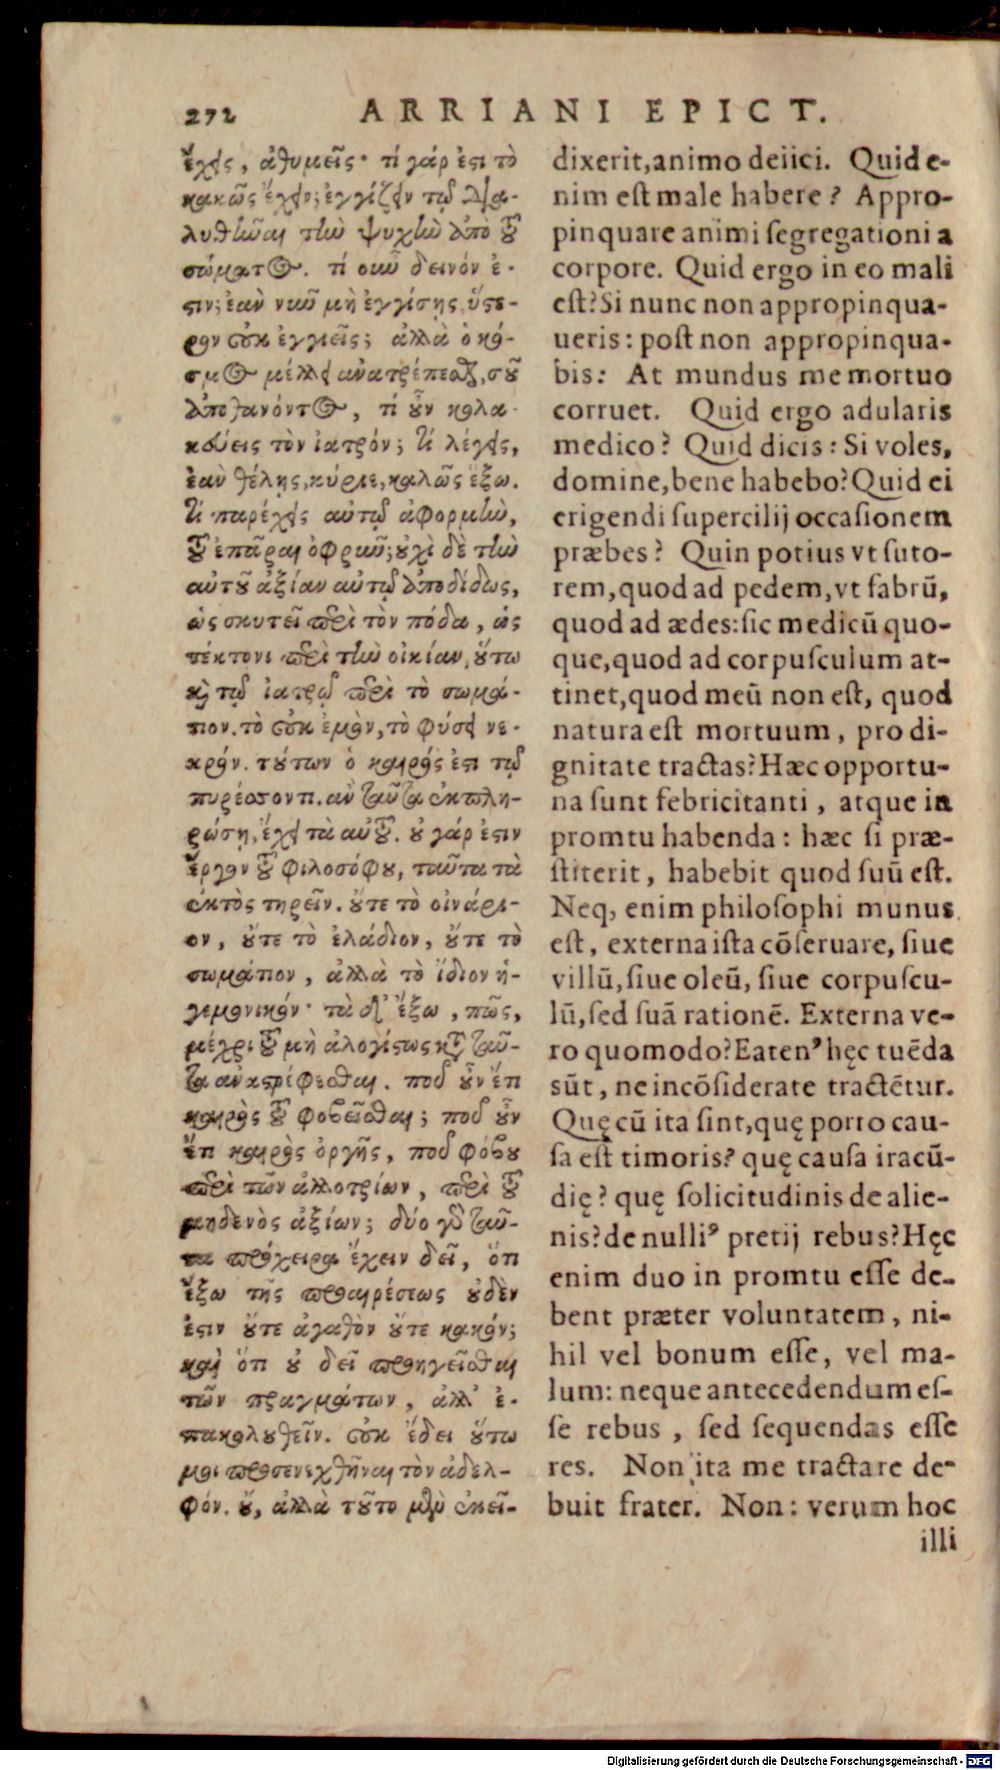 272 ARRIANI EPICT.
ἔχῃς, ἀθυμεῖς· τί γάρ ἐστι τὸ
κακῶς ἔχειν; ἐγγίζειν τῷ δια-
λυθῆναι τὴν ψυχὴν ἀπὸ τοῦ
σώματος. τί οὖν δεινόν ἐ-
στιν; ἐὰν νῦν μὴ ἐγγίσῃς, ὕστε-
ρον οὐκ ἐγγιεῖς; ἀλλὰ ὁ κό-
σμος μέλλει ἀνατρέπεσθαι, σοῦ
ἀποθανόντος, τί οὖν κολα-
κεύεις τὸν ἰατρόν; τί λέγεις,
ἐὰν θέλῃς, κύριε, καλῶς ἕξω.
τί παρέχεις αὐτῷ ἀφορμὴν,
τοῦ ἐπᾶραι ὀφρῦν; οὐχὶ δὲ τὴν
αὐτοῦ ἀξίαν αὐτῷ ἀποδίδως,
ὡς σκυτεῖ περὶ τὸν πόδα, ὡς
τέκτονι περὶ τὴν οἰκίαν, οὕτω
καὶ τῷ ἰατρῷ περὶ τὸ σωμά-
τιον. τὸ οὐκ ἐμὸν, τὸ φύσει νε-
κρόν. τούτων ὁ καιρός ἐστι τῷ
πυρέσσοντι. ἂν ταῦτα ἐκπλη-
ρώσῃ, ἔχει τὰ αὑτοῦ. οὐ γάρ ἐστιν
ἔργον τοῦ φιλοσόφου, ταῦτα τὰ
ἐκτὸς τηρεῖν. οὔτε τὸ οἰνάρι-
ον, οὔτε τὸ ἐλάδιον, οὔτε τὸ
σωμάτιον, ἀλλὰ τὸ ἴδιον ἡ-
γεμονικόν· τὰ δ' ἔξω, πῶς,
μέχρι τοῦ μὴ ἀλογίστως κατὰ ταῦ-
τα ἀναστρέφεσθαι. ποῦ οὖν ἔτι
καιρὸς τοῦ φοβεῖσθαι; ποῦ οὖν
ἔτι καιρὸς ὀργῆς, ποῦ φόβου
περὶ τῶν ἀλλοτρίων, περὶ τοῦ
μηδενὸς ἀξίων; δύο γὰρ ταῦ-
τα πρόχειρα ἔχειν δεῖ, ὅτι
ἔξω τῆς προαιρέσεως οὐδὲν
ἐστιν οὔτε ἀγαθὸν οὔτε κακόν;
καὶ ὅτι οὐ δεῖ προηγεῖσθαι
τῶν πραγμάτων, ἀλλ' ἐ-
πακολουθεῖν. οὐκ ἔδει οὕτω
μοι προσενεχθῆναι τὸν ἀδελ-
φόν. οὔ, ἀλλὰ τοῦτο μὲν ἐκεῖ-
dixerit, animo deiici. Quid e-
nim est male habere? Appro-
pinquare animi segregationi a
corpore. Quid ergo in eo mali
est? Si nunc non appropinqua-
ueris: post non appropinqua-
bis: At mundus me mortuo
corruet. Quid ergo adularis
medico? Quid dicis: Si voles,
domine, bene habebo? Quid ei
erigendi supercilij occasionem
præbes? Quin potius vt suto-
rem, quod ad pedem, vt fabrū,
quod ad ædes: sic medicū quo-
que, quod ad corpusculum at-
tinet, quod meū non est, quod
natura est mortuum, pro di-
gnitate tractas? Hæc opportu-
na sunt febricitanti, atque in
promtu habenda: hæc si præ-
stiterit, habebit quod suū est.
Neq, enim philosophi munus
est, externa ista cōseruare, siue
villū, siue oleū, siue corpuscu-
lū, sed suā rationē. Externa ve-
ro quomodo? Eaten' hęc tuēda
sūt, ne incōsiderate tractētur.
Quę cū ita sint, quę porro cau-
sa est timoris? quę causa iracū-
dię? quę solicitudinis de alie-
nis? de nulli' pretij rebus? Hęc
enim duo in promtu esse de-
bent præter voluntatem, ni-
hil vel bonum esse, vel ma-
lum: neque antecedendum es-
se rebus, sed sequendas esse
res. Non ita me tractare de-
buit frater. Non: verum hoc
illi
Digitalisierung gefördert durch die Deutsche Forschungsgemeinschaft - DFG